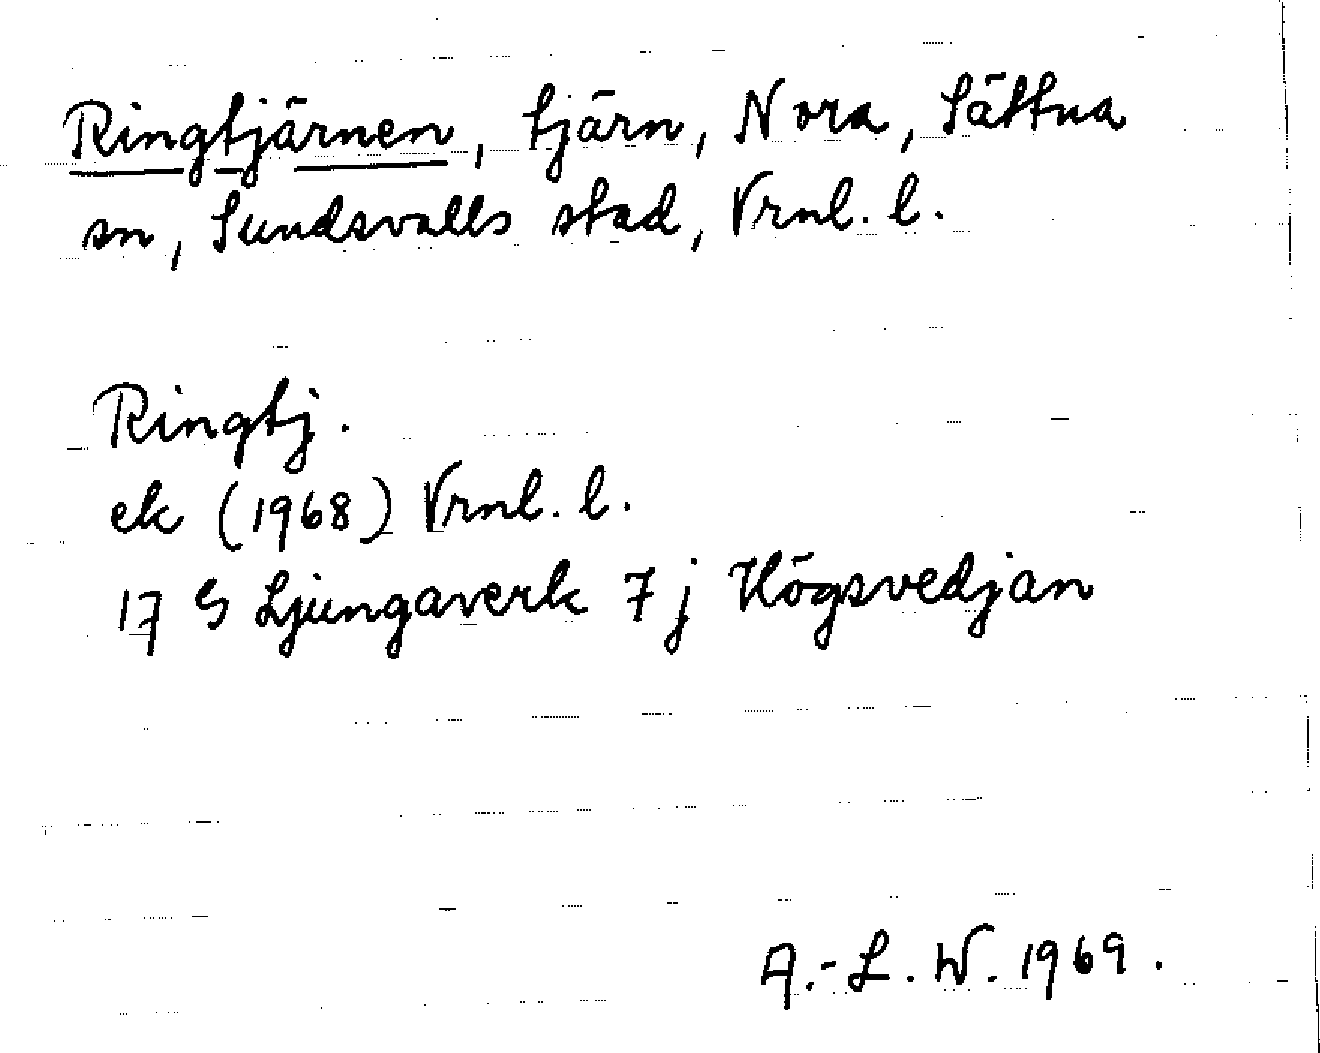 Ringtjärnen, tjärn, Nora, Sättna
sn, Sundsvalls stad, Vrnl. l.
Ringtj.
ek (1968) Vrnl. l.
17 G Ljungaverk 7 j Högsvedjan
A.-L. W. 1969.